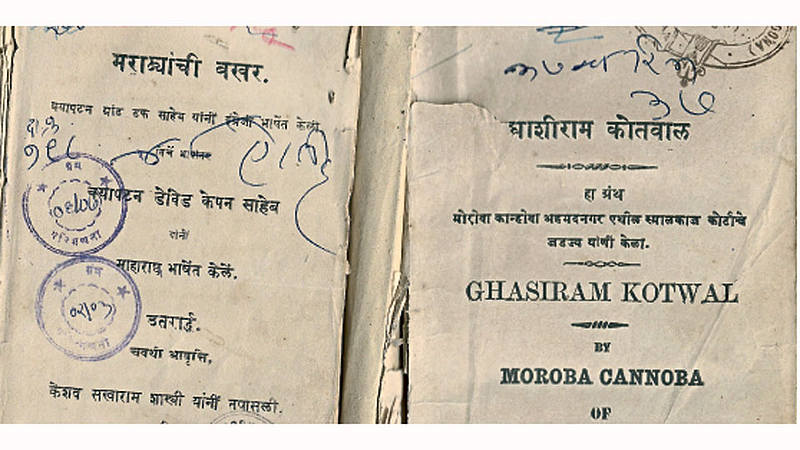 मराठ्यांची बखर.
क्यापटन ग्रांट डफ साहेब यांनीं इंग्रेजी भाषेंत केली
क्यापटन डेविड केपन साहेब
यांनीं
माहाराष्ट्र भाषेंत केलें.
उतरार्द्ध.
चवथी आवृत्ति,
केशव सखाराम शास्त्री यांनीं तपासली.
ग्रंथ
परिगणना
ग्रंथ
घाशीराम कोतवाल
हा ग्रंथ
मोरोबा कान्होबा अहमदनगर एथील स्मालकाज कोर्टाचे
जडज्य यांणीं केला.
GHASIRAM KOTWAL
BY
MOROBA CANNOBA
OF